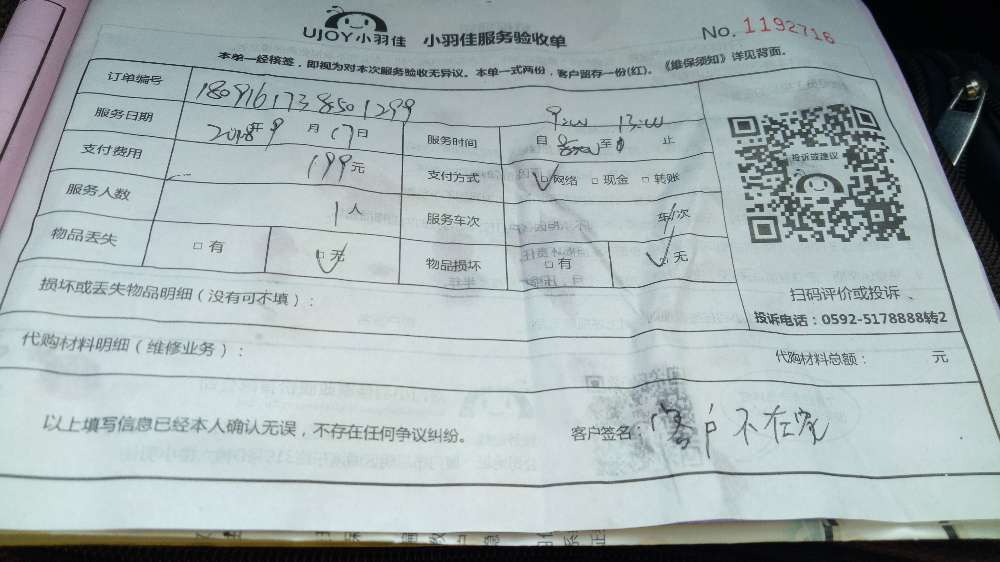 UJOY小羽佳 小羽佳服务验收单 No. 1192716
本单一经核签，即视为对本次服务验收无异议。本单一式两份，客户留存一份(红)。《维保须知》详见背面。
订单编号 1809161738501299
服务日期 2018年9月17日 服务时间 自 9:00 至 13:00 止
支付费用 199元 支付方式 ☑网络 □现金 □转账
服务人数 1人 服务车次 1次
物品丢失 □有 ☑无 物品损坏 □有 ☑无
投诉或建议
扫码评价或投诉
投诉电话：0592-5178888转2
损坏或丢失物品明细（没有可不填）：
代购材料明细（维修业务）： 代购材料总额： 元
以上填写信息已经本人确认无误，不存在任何争议纠纷。 客户签名：客户不在家